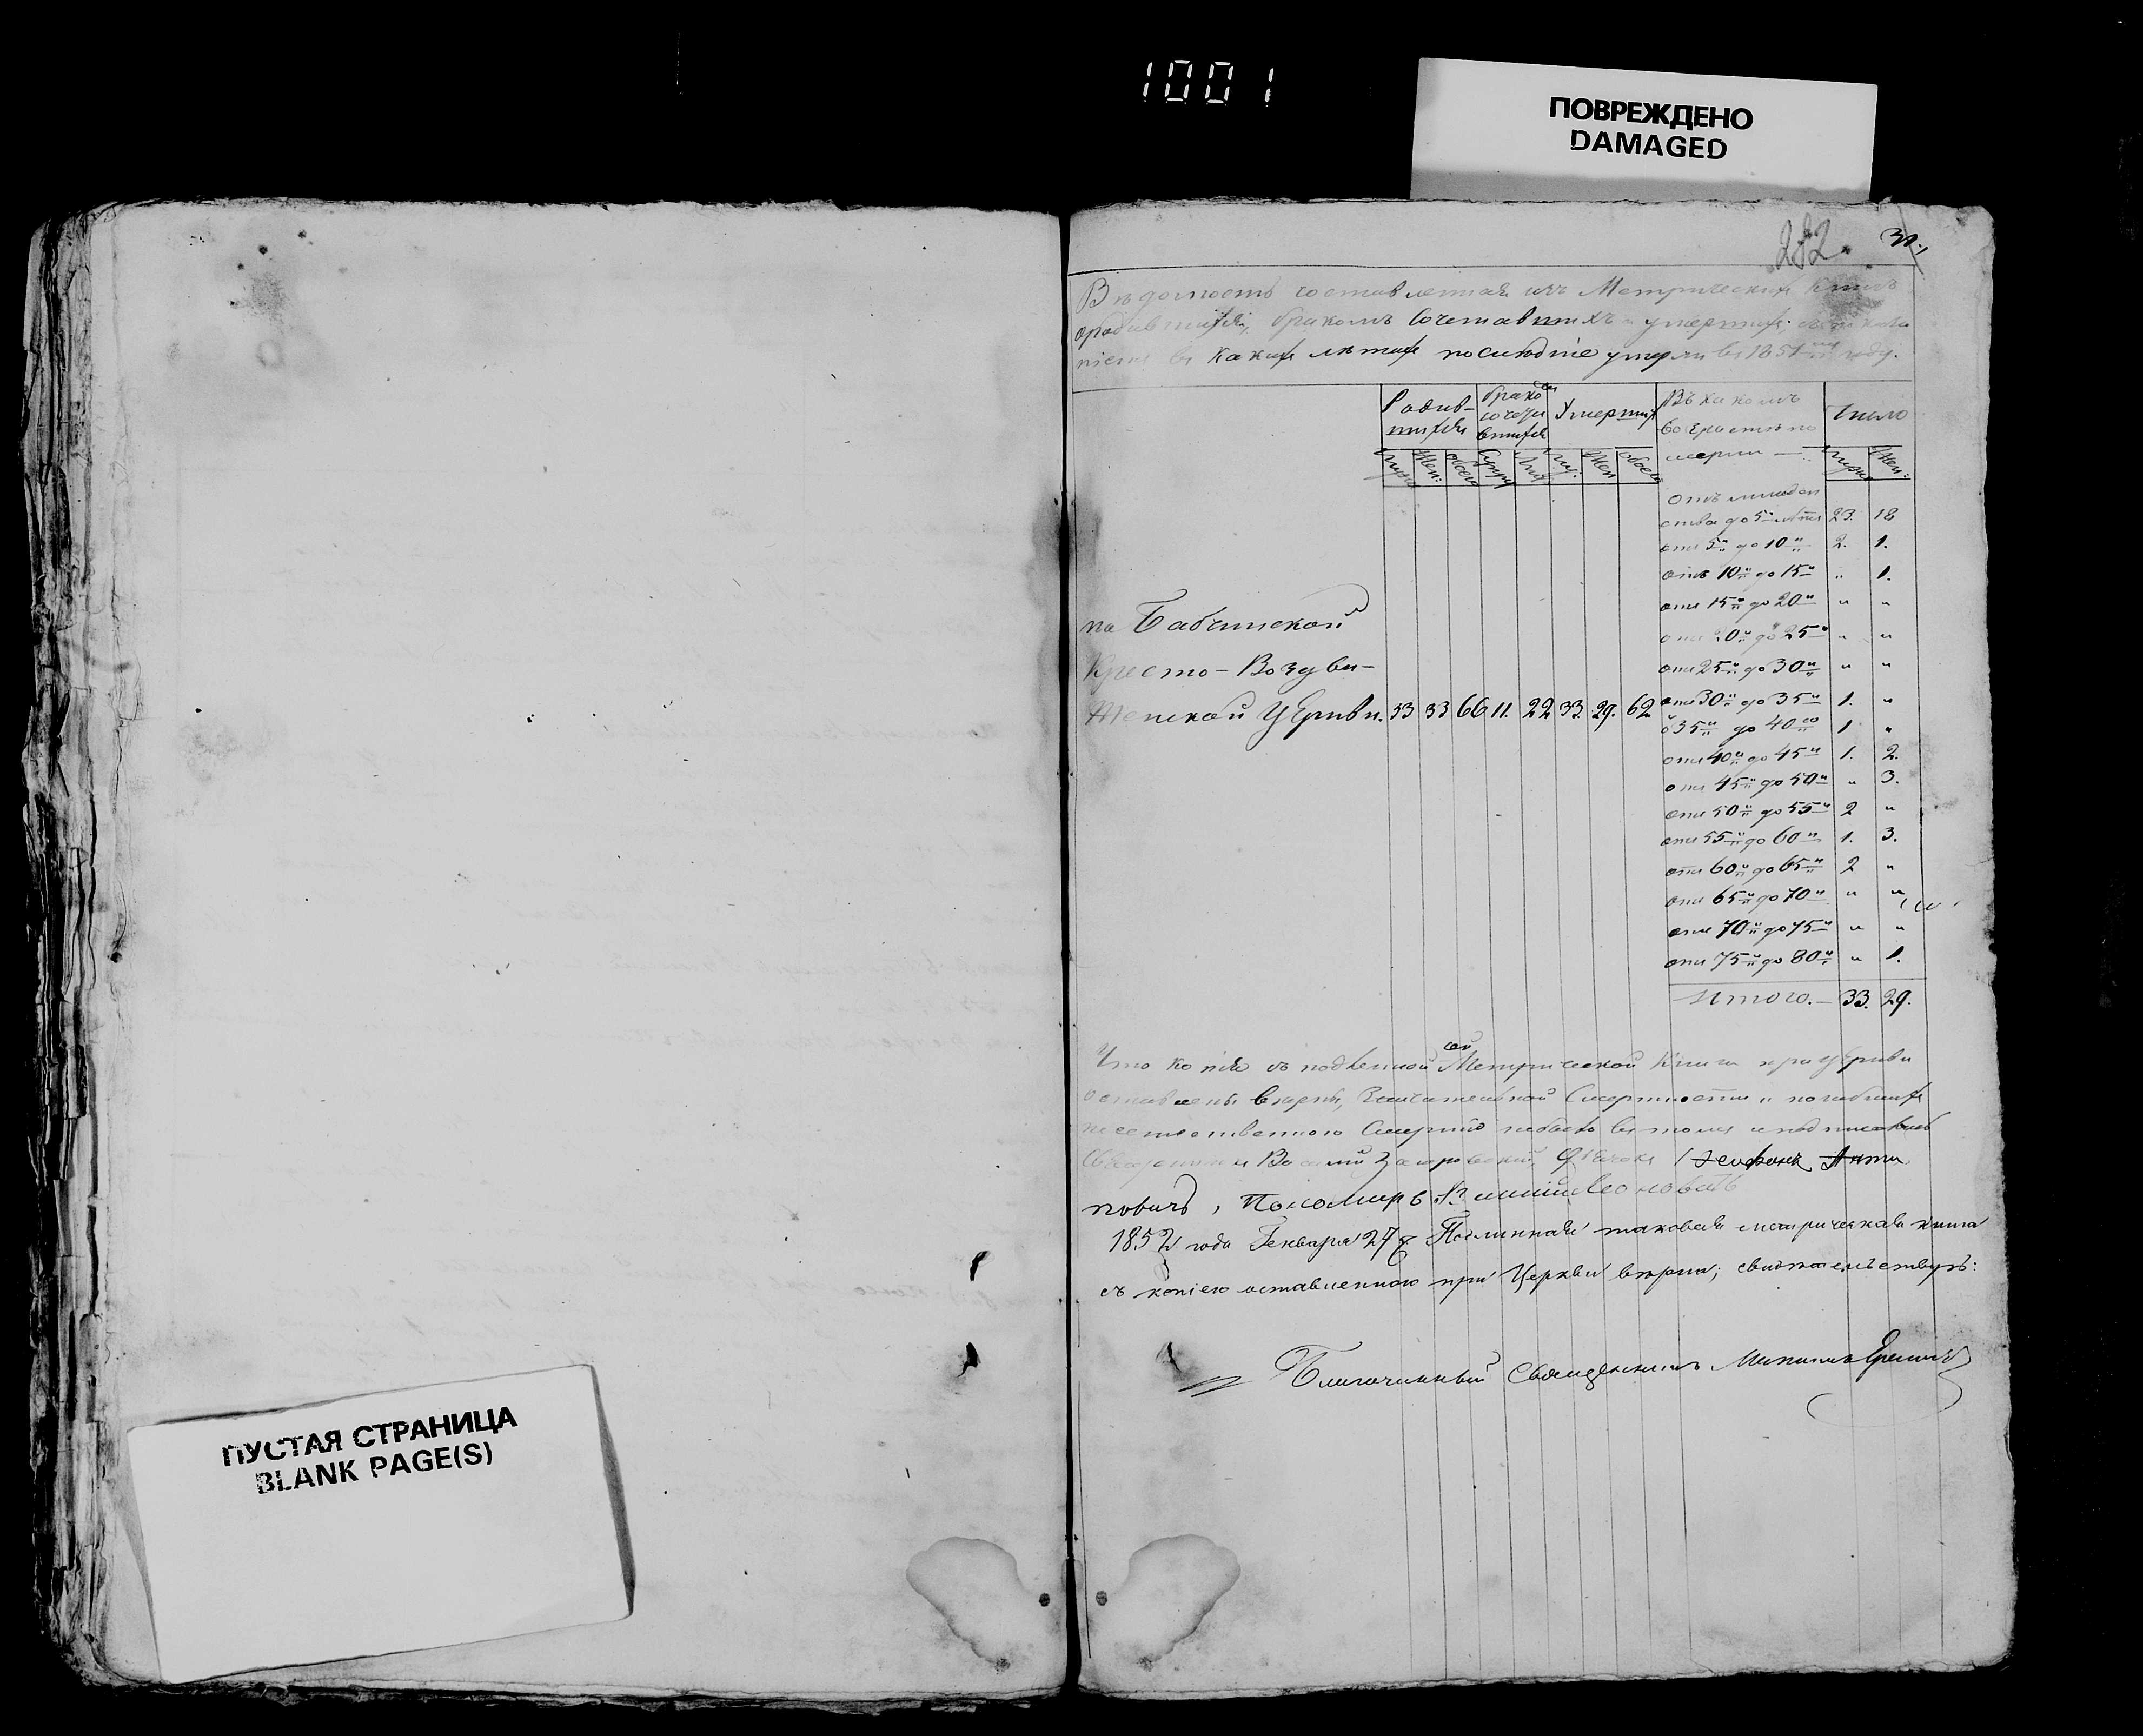 1001
ПОВРЕЖДЕНО
DAMAGED
282.
Вѣдомость составленная изъ Метрическихъ Книгъ
родившихся, бракомъ Сочетавшихъ и умершихъ,
въ какихъ лѣтахъ послѣдніе умерли въ 1851 году.
Родив-
шихся
брако
сочета
вшихся
Умершихъ
Въ какомъ
возрастѣ по
мерли
Число
Муж
Жен:
обоего
Муж.
Жен
обоего
Жен:
Отъ младен
ства до 5 лѣтъ 23. 18
отъ 5 до 10 2. 1.
отъ 10 до 15 " 1.
отъ 15 до 20 " "
отъ 20 до 25 " "
отъ 25 до 30 " "
по Бабчинской
Кресто-Воздви-
женской Церкви. 33 33 66 11. 22 33. 29. 62
отъ 30 до 35 1. "
35 до 40 1 "
отъ 40 до 45 1. 2.
отъ 45 до 50 " 3.
отъ 50 до 55 2 "
отъ 55 до 60 1. 3.
отъ 60 до 65 2 "
отъ 65 до 70 " "
отъ 70 до 75 " "
отъ 75 до 80 " 1.
Итого. 33. 29.
Что копія съ подленной сей Метрической Книги при Церкви
оставлены вѣрны, Значительной Смертности и погибших
неестественною Смертію небыло въ томъ и подписались
Священникъ Дьячокъ
1852 года Генваря 27 Подлинная таковая метрическая книга
съ копіею оставленною при Церкви вѣрна; свидѣтельствую:
Благочинный Священникъ
ПУСТАЯ СТРАНИЦА
BLANK PAGE(S)